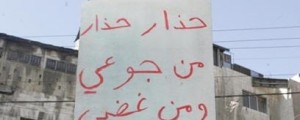 حذار حذار
من جوعي
ومن غضبي